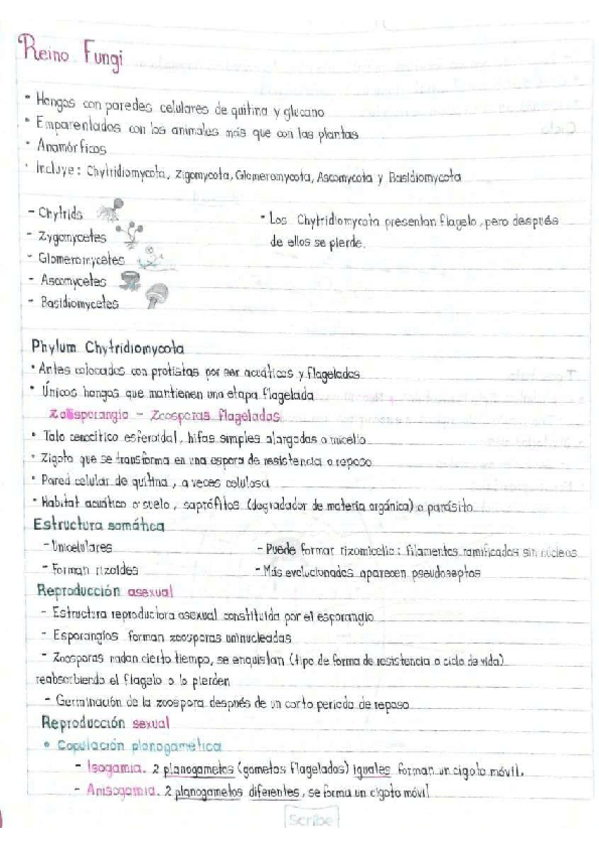 Reino Fungi
- Hongos con paredes celulares de quitina y glucano
- Emparentados con los animales más que con las plantas
- Anamórficos
- Incluye: Chytridiomycota, Zigomycota, Glomeromycota, Ascomycota y Basidiomycota
- Chytrids
- Zygomycetes
- Glomeromycetes
- Ascomycetes
- Basidiomycetes
- Los Chytridiomycota presentan flagelo, pero después
de ellos se pierde.
Phylum Chytridiomycota
• Antes colocados con protistas por ser acuáticos y flagelados
• Únicos hongos que mantienen una etapa flagelada
Zoosporangio - Zoosporas flageladas
• Talo cenocítico esferoidal, hifas simples alargadas o micelio
• Zigoto que se transforma en una espora de resistencia o reposo
• Pared celular de quitina, a veces celulosa
• Habitat acuático o suelo, saprófitos (degradador de materia orgánica) o parásito
Estructura somática
- Unicelulares
- Forman rizoides
- Puede formar rizomicelio: filamentos ramificados sin núcleos
- Más evolucionados aparecen pseudoseptos
Reproducción asexual
- Estructura reproductora asexual constituida por el esporangio
- Esporangios forman zoosporas uninucleadas
- Zoosporas nadan cierto tiempo, se enquistan (tipo de forma de resistencia o ciclo de vida)
reabsorbiendo el flagelo o lo pierden
- Germinación de la zoospora después de un corto periodo de reposo
Reproducción sexual
• Copulación planogamética
- Isogamia. 2 planogametos (gametos flagelados) iguales forman un cigoto móvil.
- Anisogamia. 2 planogametos diferentes, se forma un cigoto móvil
Scribe